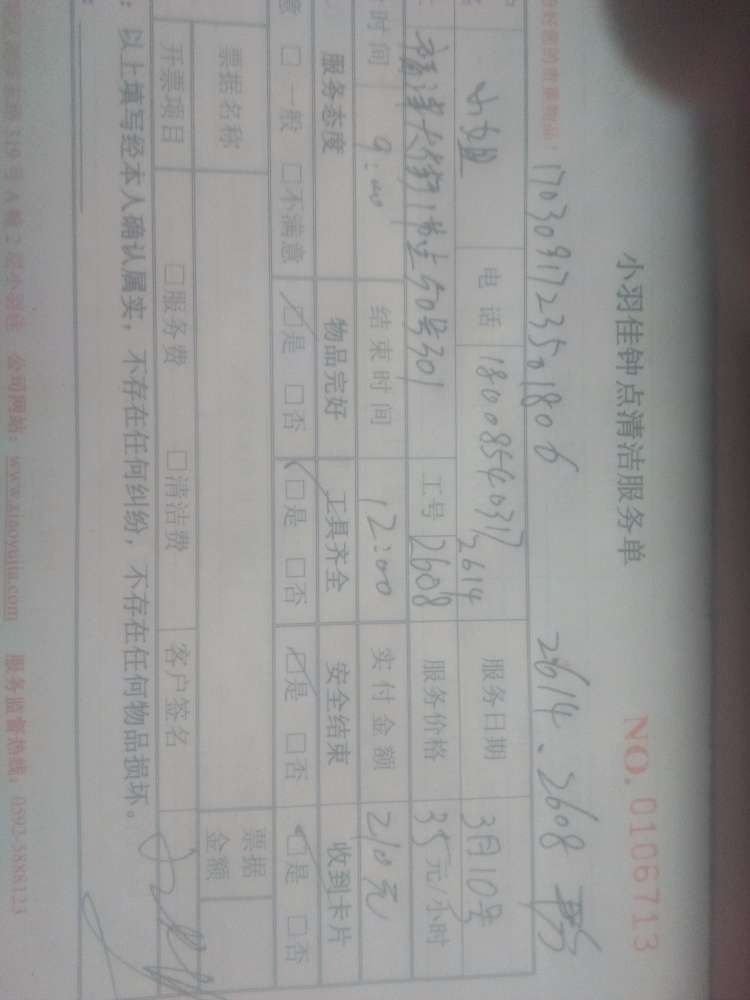 小羽佳钟点清洁服务单
NO. 0106713
170309172350 1806 2614、2608
电话 18008540317 服务日期 3月10号
2614
301 工号 2608 服务价格 35元/小时
时间 9:00 结束时间 12:00 实付金额 210元
服务态度 物品完好 工具齐全 安全结束 收到卡片
意 □一般 □不满意 □是 □否 □是 □否 □是 □否 □是 □否
票据名称 票据金额
开票项目 □服务费 □清洁费 客户签名
：以上填写经本人确认属实，不存在任何纠纷，不存在任何物品损坏。
319号A幢2层小羽佳 公司网站：www.xiaoyujia.com 服务监督热线：0592-5888123